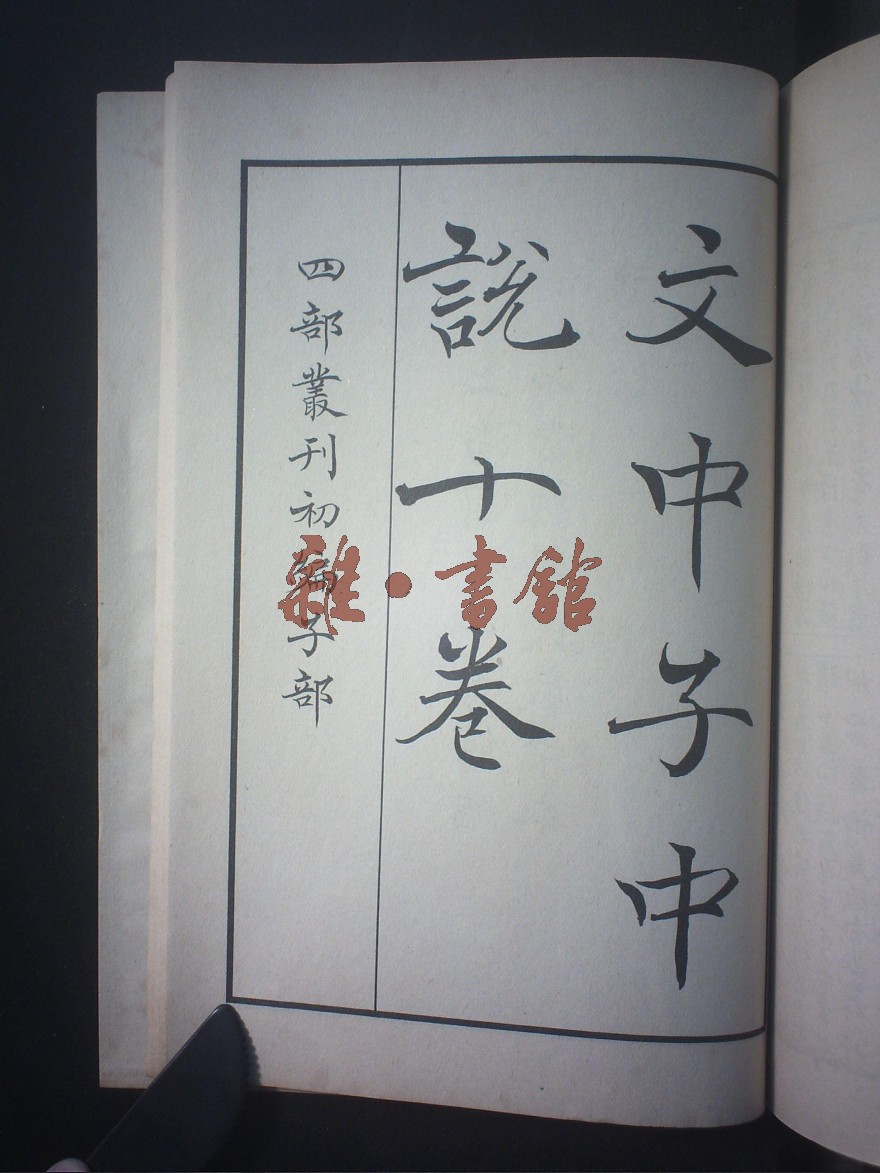 文中子中
說十卷
四部叢刊初編子部
雜·書館